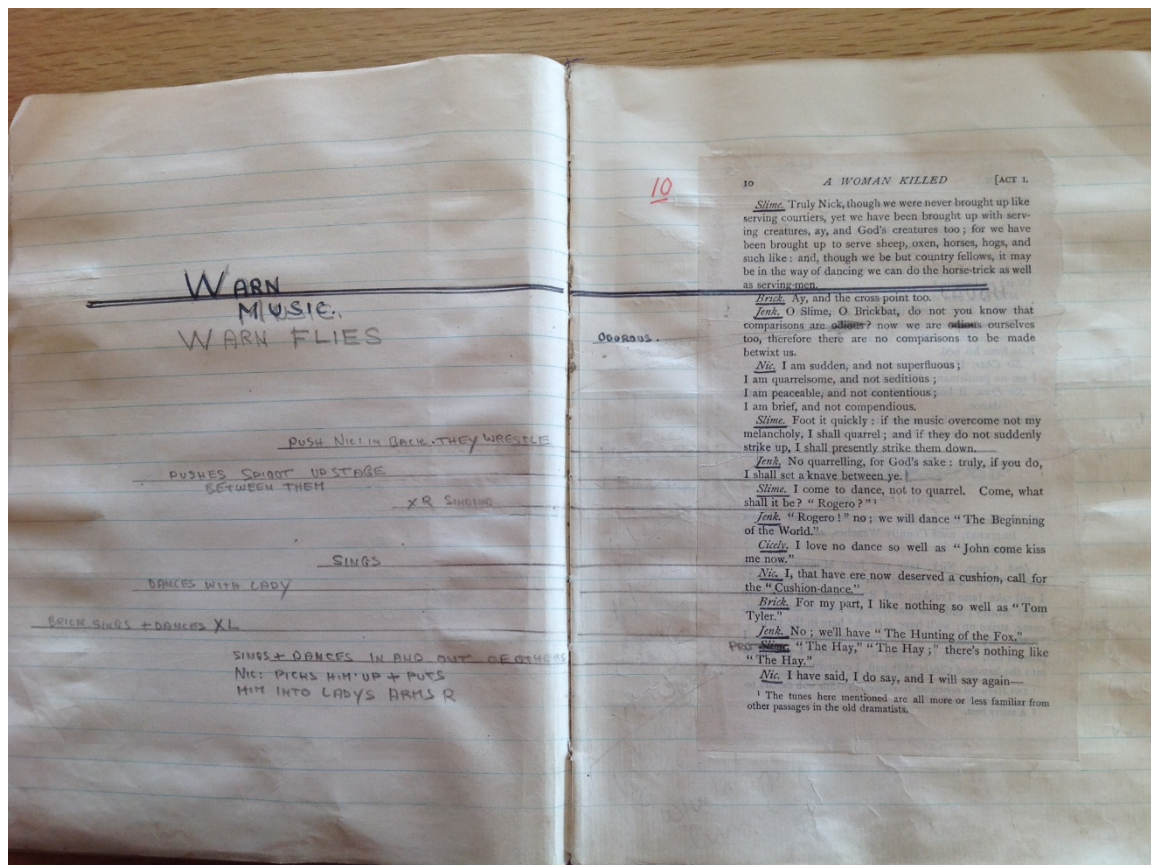 WARN
MUSIC.
WARN FLIES
PUSH NIC: IN BACK. THEY WRESTLE
PUSHES SPIGOT UPSTAGE
BETWEEN THEM
XR SINGING
SINGS
DANCES WITH LADY
BRICK SINGS + DANCES XL
SINGS + DANCES IN AND OUT OF OTHERS
NIC: PICKS HIM UP + PUTS
HIM INTO LADYS ARMS R
10
ODOROUS.
10 A WOMAN KILLED [ACT I.
Slime. Truly Nick, though we were never brought up like
serving courtiers, yet we have been brought up with serv-
ing creatures, ay, and God's creatures too; for we have
been brought up to serve sheep, oxen, horses, hogs, and
such like: and, though we be but country fellows, it may
be in the way of dancing we can do the horse-trick as well
as serving-men.
Brick. Ay, and the cross-point too.
Jenk. O Slime, O Brickbat, do not you know that
comparisons are odious? now we are odious ourselves
too, therefore there are no comparisons to be made
betwixt us.
Nic. I am sudden, and not superfluous;
I am quarrelsome, and not seditious;
I am peaceable, and not contentious;
I am brief, and not compendious.
Slime. Foot it quickly: if the music overcome not my
melancholy, I shall quarrel; and if they do not suddenly
strike up, I shall presently strike them down.
Jenk. No quarrelling, for God's sake: truly, if you do,
I shall set a knave between ye.
Slime. I come to dance, not to quarrel. Come, what
shall it be? "Rogero?" 1
Jenk. "Rogero!" no; we will dance "The Beginning
of the World."
Cicely. I love no dance so well as "John come kiss
me now."
Nic. I, that have ere now deserved a cushion, call for
the "Cushion-dance."
Brick. For my part, I like nothing so well as "Tom
Tyler."
Jenk. No; we'll have "The Hunting of the Fox."
Slime. "The Hay," "The Hay;" there's nothing like
"The Hay."
Nic. I have said, I do say, and I will say again—
1 The tunes here mentioned are all more or less familiar from
other passages in the old dramatists.